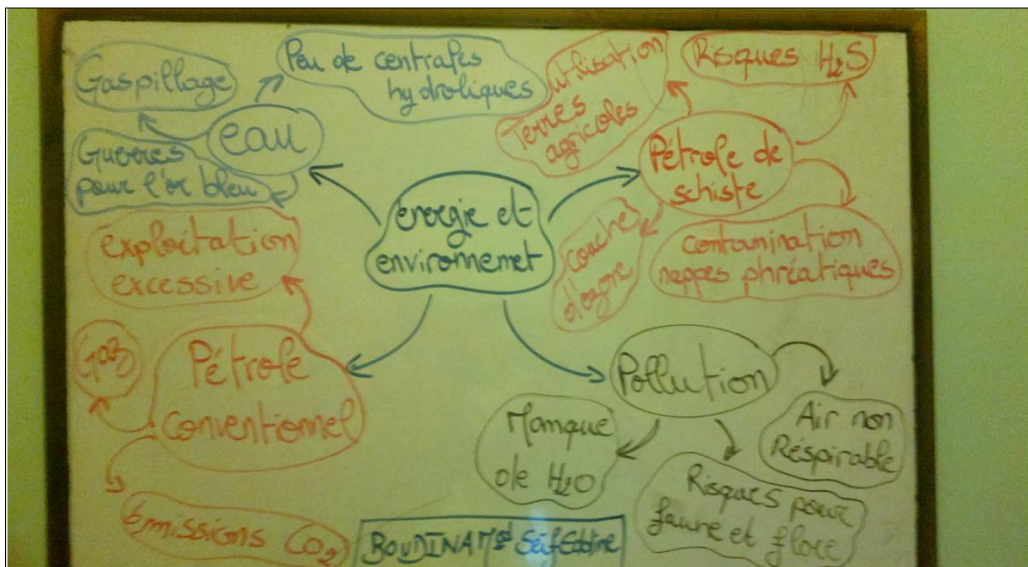 énergie et
environnemet
eau
Gaspillage
Peu de centrales
hydroliques
Guerres
pour l'or bleu
Pétrole de
schiste
utilisation
Terres
agricoles
Risques H2S
contamination
nappes phréatiques
couche
d'ozone
Pétrole
conventionnel
exploitation
excessive
Gaz
émissions CO2
Pollution
Manque
de H2O
Risques pour
faune et flore
Air non
Réspirable
BOUDINA Med Seif Eddine